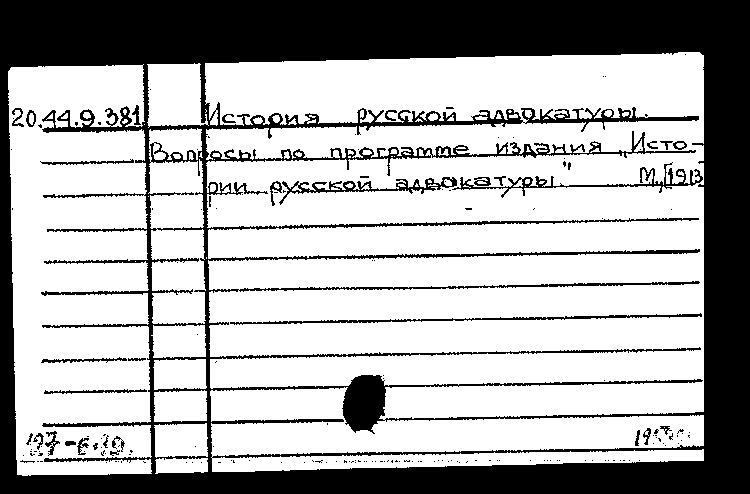 20.44.9.381 История русской адвокатуры.
Вопросы по программе издания „Исто-
рии русской адвокатуры." М.,[1913